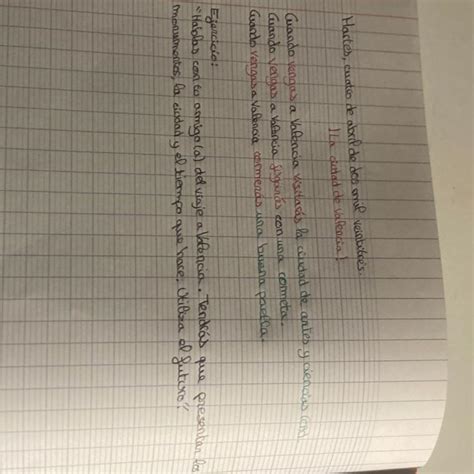 Martes, cuatro de abril de dos mil veintitrés.
¡La ciudad de Valencia!
Cuando vengas a Valencia visitarás la ciudad de artes y ciencias
Cuando vengas a Valencia jugarás con una cometa.
Cuando vengas a Valencia comerás una buena paella.
Ejercicio:
"Hablas con tu amigo (a) del viaje a Valencia. Tendrás que presentar los
monumentos, la ciudad y el tiempo que hace. Utiliza el futuro".